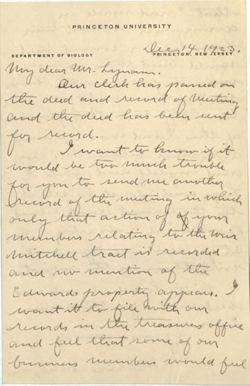 PRINCETON UNIVERSITY
DEPARTMENT OF BIOLOGY
PRINCETON, NEW JERSEY
Dec. 14, 1923.
My dear Mr. Lymann.
Our clerk has passed on
the deed and record of Meeting
and the deed has been sent
for record.
I want to know if it
would be too much trouble
for you to send me another
record of the meeting in which
only that action of your
members relating to the Weir
Mitchell tract is recorded
and no mention of the
Edwards property appears. I
want it to file with our
records in the treasurers office
and feel that some of our
business members would feel